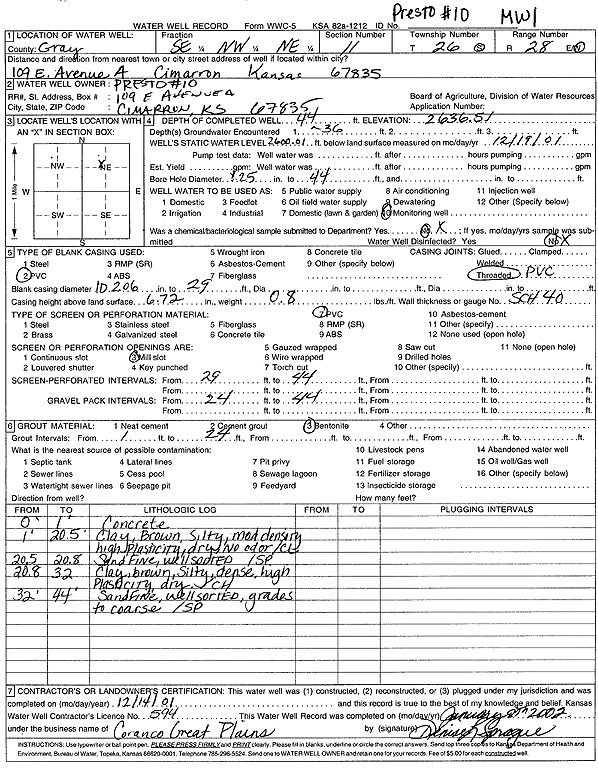 PRESTO #10 MW1
WATER WELL RECORD Form WWC-5 KSA 82a-1212 ID No.
1 LOCATION OF WATER WELL: Fraction Section Number Township Number Range Number
County: Gray SE ¼ NW ¼ NE ¼ 11 T 26 S R 28 E/W
Distance and direction from nearest town or city street address of well if located within city?
109 E. Avenue A Cimarron Kansas 67835
2 WATER WELL OWNER: PRESTO #10
RR#, St. Address, Box # : 109 E AVENUE A Board of Agriculture, Division of Water Resources
City, State, ZIP Code : CIMARRON, KS 67835 Application Number:
3 LOCATE WELL'S LOCATION WITH AN "X" IN SECTION BOX:
N
NW X NE
W E
SW SE
S
1 Mile
4 DEPTH OF COMPLETED WELL 44 ft. ELEVATION: 2636.51
Depth(s) Groundwater Encountered 1. ~36 ft. 2. ft. 3. ft.
WELL'S STATIC WATER LEVEL 2600.01 ft. below land surface measured on mo/day/yr 12/19/01
Pump test data: Well water was ft. after hours pumping gpm
Est. Yield gpm: Well water was ft. after hours pumping gpm
Bore Hole Diameter 8.25 in. to 44 ft., and in. to ft.
WELL WATER TO BE USED AS: 5 Public water supply 8 Air conditioning 11 Injection well
1 Domestic 3 Feedlot 6 Oil field water supply 9 Dewatering 12 Other (Specify below)
2 Irrigation 4 Industrial 7 Domestic (lawn & garden) 10 Monitoring well
Was a chemical/bacteriological sample submitted to Department? Yes No X ; If yes, mo/day/yrs sample was sub-
mitted Water Well Disinfected? Yes No X
5 TYPE OF BLANK CASING USED: 5 Wrought iron 8 Concrete tile CASING JOINTS: Glued Clamped
1 Steel 3 RMP (SR) 6 Asbestos-Cement 9 Other (specify below) Welded
2 PVC 4 ABS 7 Fiberglass Threaded PVC
Blank casing diameter ID 2.06 in. to 29 ft., Dia in. to ft., Dia in. to ft.
Casing height above land surface 6.72 in., weight 0.8 lbs./ft. Wall thickness or gauge No. SCH 40
TYPE OF SCREEN OR PERFORATION MATERIAL: 7 PVC 10 Asbestos-cement
1 Steel 3 Stainless steel 5 Fiberglass 8 RMP (SR) 11 Other (specify)
2 Brass 4 Galvanized steel 6 Concrete tile 9 ABS 12 None used (open hole)
SCREEN OR PERFORATION OPENINGS ARE: 5 Gauzed wrapped 8 Saw cut 11 None (open hole)
1 Continuous slot 3 Mill slot 6 Wire wrapped 9 Drilled holes
2 Louvered shutter 4 Key punched 7 Torch cut 10 Other (specify) ft.
SCREEN-PERFORATED INTERVALS: From 29 ft. to 44 ft., From ft. to ft.
From ft. to ft., From ft. to ft.
GRAVEL PACK INTERVALS: From 24 ft. to 44 ft., From ft. to ft.
From ft. to ft., From ft. to ft.
6 GROUT MATERIAL: 1 Neat cement 2 Cement grout 3 Bentonite 4 Other
Grout Intervals: From 1 ft. to 24 ft., From ft. to ft., From ft. to ft.
What is the nearest source of possible contamination: 10 Livestock pens 14 Abandoned water well
1 Septic tank 4 Lateral lines 7 Pit privy 11 Fuel storage 15 Oil well/Gas well
2 Sewer lines 5 Cess pool 8 Sewage lagoon 12 Fertilizer storage 16 Other (specify below)
3 Watertight sewer lines 6 Seepage pit 9 Feedyard 13 Insecticide storage
Direction from well? How many feet?
FROM TO LITHOLOGIC LOG FROM TO PLUGGING INTERVALS
0' 1' Concrete
1' 20.5' Clay, Brown, Silty, mod density
high Plasticity, dry, No odor /CH
20.5 20.8 Sand Fine, well sorted /SP
20.8 32 Clay, brown, Silty, dense, high
Plasticity dry /CH
32' 44' Sand Fine, well sorted, grades
to coarse /SP
7 CONTRACTOR'S OR LANDOWNER'S CERTIFICATION: This water well was (1) constructed, (2) reconstructed, or (3) plugged under my jurisdiction and was
completed on (mo/day/year) 12/14/01 and this record is true to the best of my knowledge and belief. Kansas
Water Well Contractor's Licence No. 594 This Water Well Record was completed on (mo/day/yr) January 8th 2002
under the business name of Coranco Great Plains by (signature) Denise Sprague
INSTRUCTIONS: Use typewriter or ball point pen. PLEASE PRESS FIRMLY and PRINT clearly. Please fill in blanks, underline or circle the correct answers. Send top three copies to Kansas Department of Health and
Environment, Bureau of Water, Topeka, Kansas 66620-0001. Telephone 785-296-5524. Send one to WATER WELL OWNER and retain one for your records. Fee of $5.00 for each constructed well.